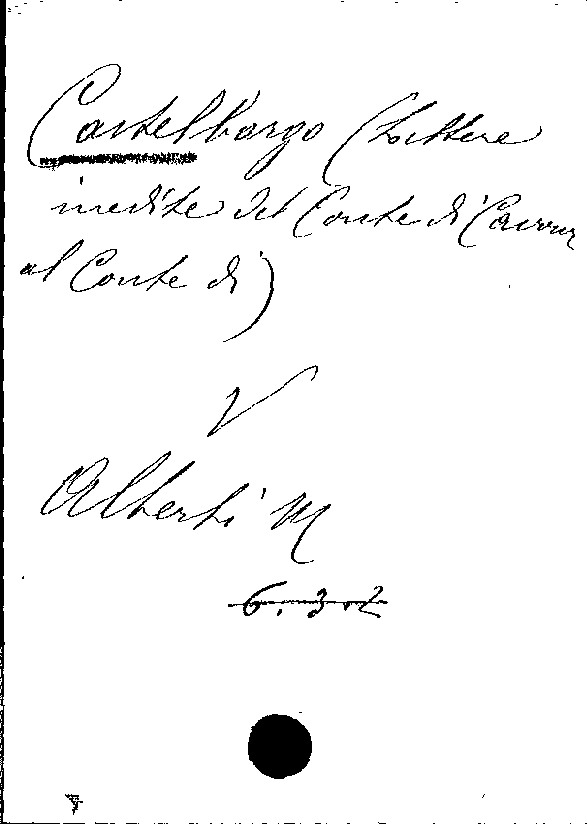 Castelborgo (Lettere
inedite del Conte di Cavour
al Conte di)
V
Alberti M
6.3.2